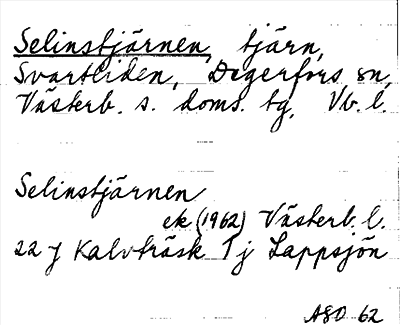 Selinstjärnen, tjärn,
Svartliden, Degerfors sn,
Västerb. s. doms. tg, Vb. l.
Selinstjärnen
ek (1962) Västerb. l.
22 J Kalvträsk 1 j Lappsjön
ASO 62